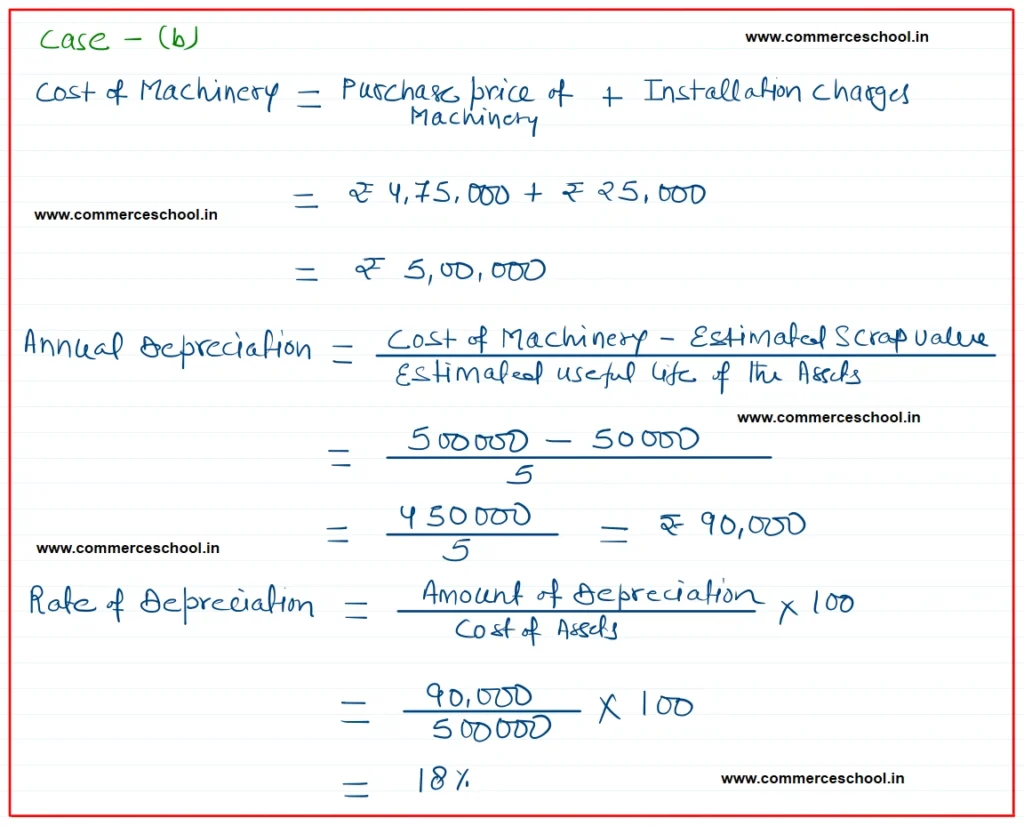 Case - (b)
www.commerceschool.in
Cost of Machinery = Purchase price of Machinery + Installation charges
= ₹ 4,75,000 + ₹ 25,000
www.commerceschool.in
= ₹ 5,00,000
Annual Depreciation = Cost of Machinery - Estimated Scrap value
Estimated useful life of the Assets
www.commerceschool.in
= 500000 - 50000
5
= 450000 = ₹ 90,000
5
www.commerceschool.in
Rate of Depreciation = Amount of Depreciation × 100
Cost of Assets
= 90,000 × 100
500000
= 18%
www.commerceschool.in